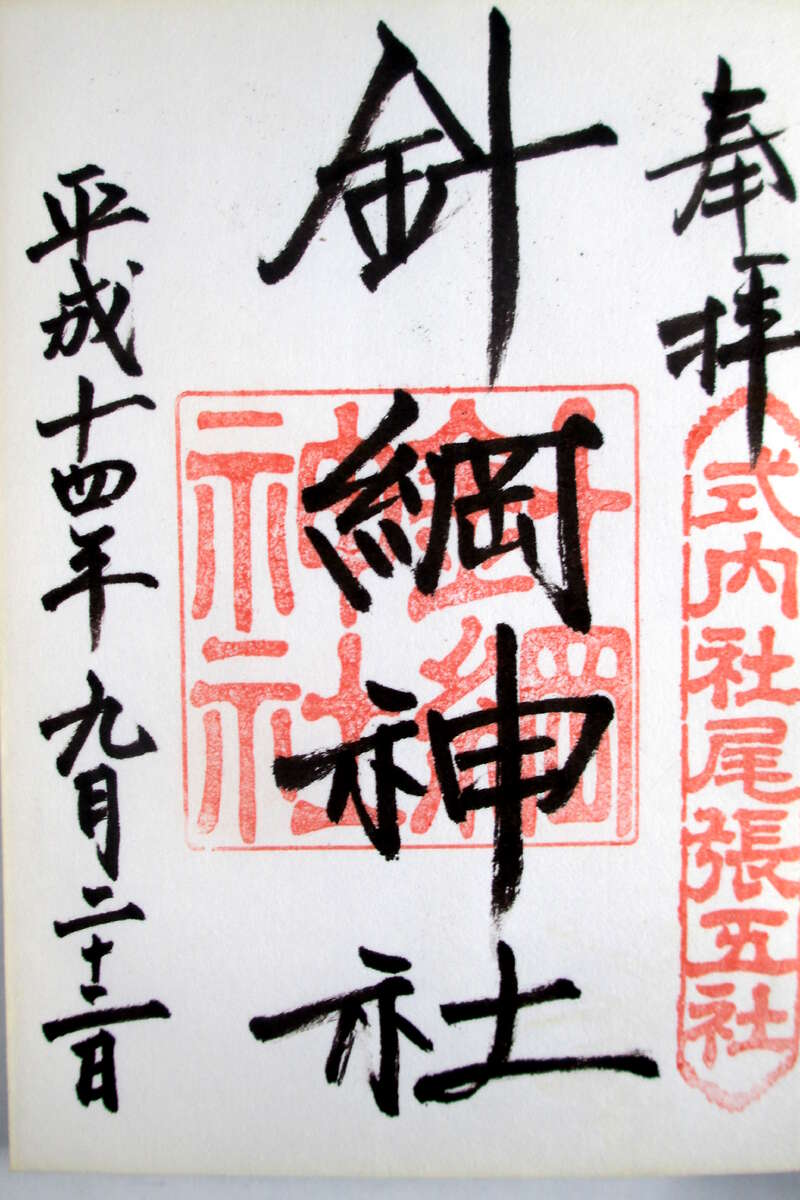 奉拝
式内社尾張五社
針綱神社
針綱
神社
平成十四年九月二十二日